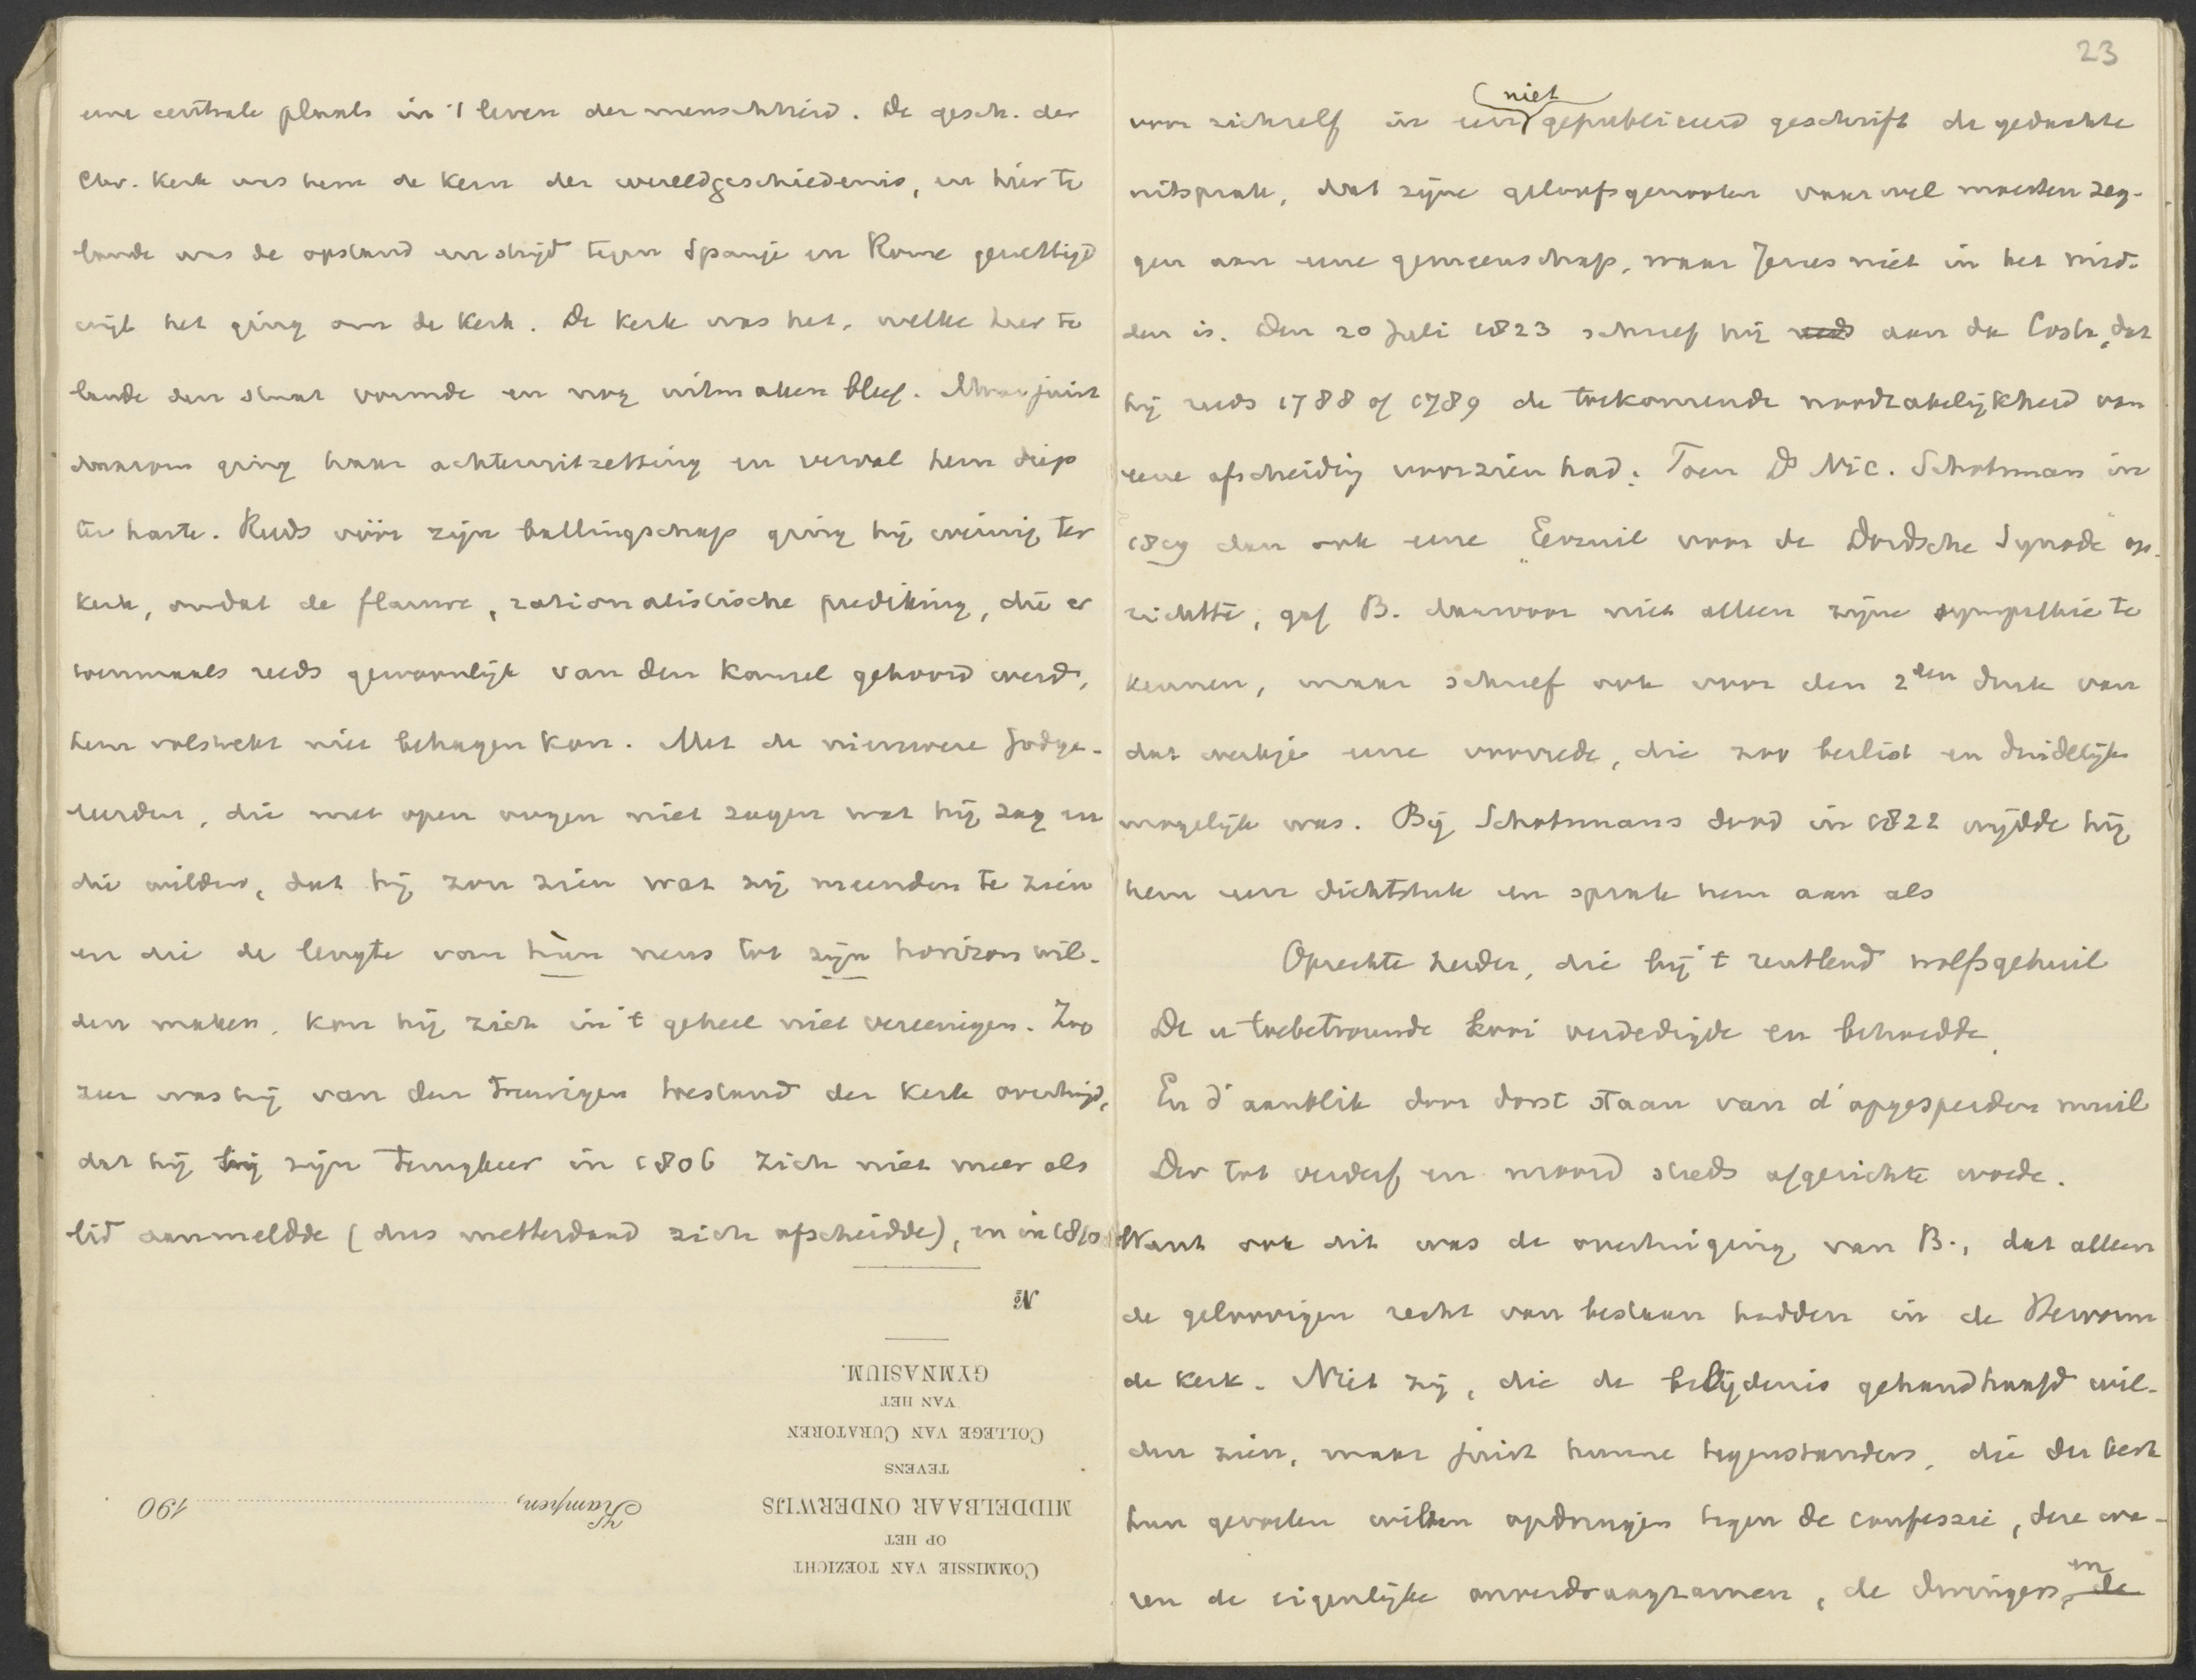 eene centrale plaats in 't leven der menschheid. De gesch. der
Chr. kerk was hem de kern der wereldgeschiedenis, en hier te
lande was de opstand en strijd tegen Spanje en Rome gewettigd
wijl het ging om de kerk. De kerk was het, welke hier te
lande den staat vormde en nog uitmaken bleef. Maar juist
daarom ging haar achteruitzetting en verval hem diep
ter harte. Reeds vóór zijn ballingschap ging hij weinig ter
kerk, omdat de flauwe, rationalistische prediking, die er
toenmaals reeds gewoonlijk van den kansel gehoord werd,
hem volstrekt niet behagen kon. Met de nieuwere Godge-
leerden, die met open oogen niet zagen wat hij zag en
die wilden, dat hij zou zien wat zij meenden te zien
en die de lengte van hùn neus tot zijn horizon wil-
den maken, kon hij zich in 't geheel niet vereenigen. Zoo
zeer was hij van den treurigen toestand der kerk overtuigd,
dat hij bij zijn terugkeer in 1806 zich niet meer als
lid aanmeldde (dus metterdaad zich afscheidde), en in 1810
№
GYMNASIUM.
VAN HET
COLLEGE VAN CURATOREN
TEVENS
MIDDELBAAR ONDERWIJS
Kampen, 190
OP HET
COMMISSIE VAN TOEZICHT
23
niet
voor zichzelf in een gepubliceerd geschrift de gedachte
uitsprak, dat zijne geloofsgenooten vaarwel moesten zeg-
gen aan eene gemeenschap, waar Jezus niet in het mid-
den is. Den 20 Juli 1823 schreef hij reeds aan da Costa, dat
hij reeds 1788 of 1789 de toekomende noodzakelijkheid van
eene afscheiding voorzien had. Toen Ds Nic. Schotsman in
1819 dan ook eene "Eerzuil voor de Dordsche Synode" op-
richtte, gaf B. daarvoor niet alleen zijne sympathie te
kennen, maar schreef ook voor den 2den druk van
dat werkje eene voorrede, die zoo beslist en duidelijk
mogelijk was. Bij Schotsmans dood in 1822 wijdde hij
hem een dichtstuk en sprak hem aan als
Oprechte herder, die bij 't reutlend wolfsgehuil
De u toebetrouwde kooi verdedigde en behoedde,
En d' aanblik door dorst staan van d' opgesperden muil
Der tot verderf en moord steeds afgerichte woede.
Want ook dit was de overtuiging van B., dat alleen
de geloovigen recht van bestaan hadden in de Hervorm
de kerk. Niet zij, die de belijdenis gehandhaafd wil-
den zien, maar juist hunne tegenstanders, die der kerk
hun gevoelen wilden opdringen tegen de confessie, deze wa-
en
ren de eigenlijke onverdraagzamen, de dwingers, de